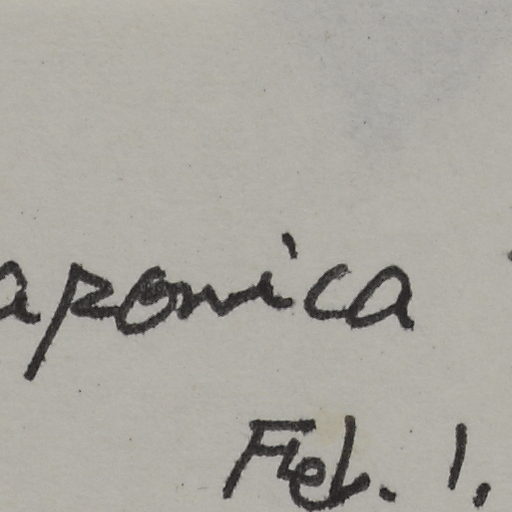 aponica
Feb. 1.